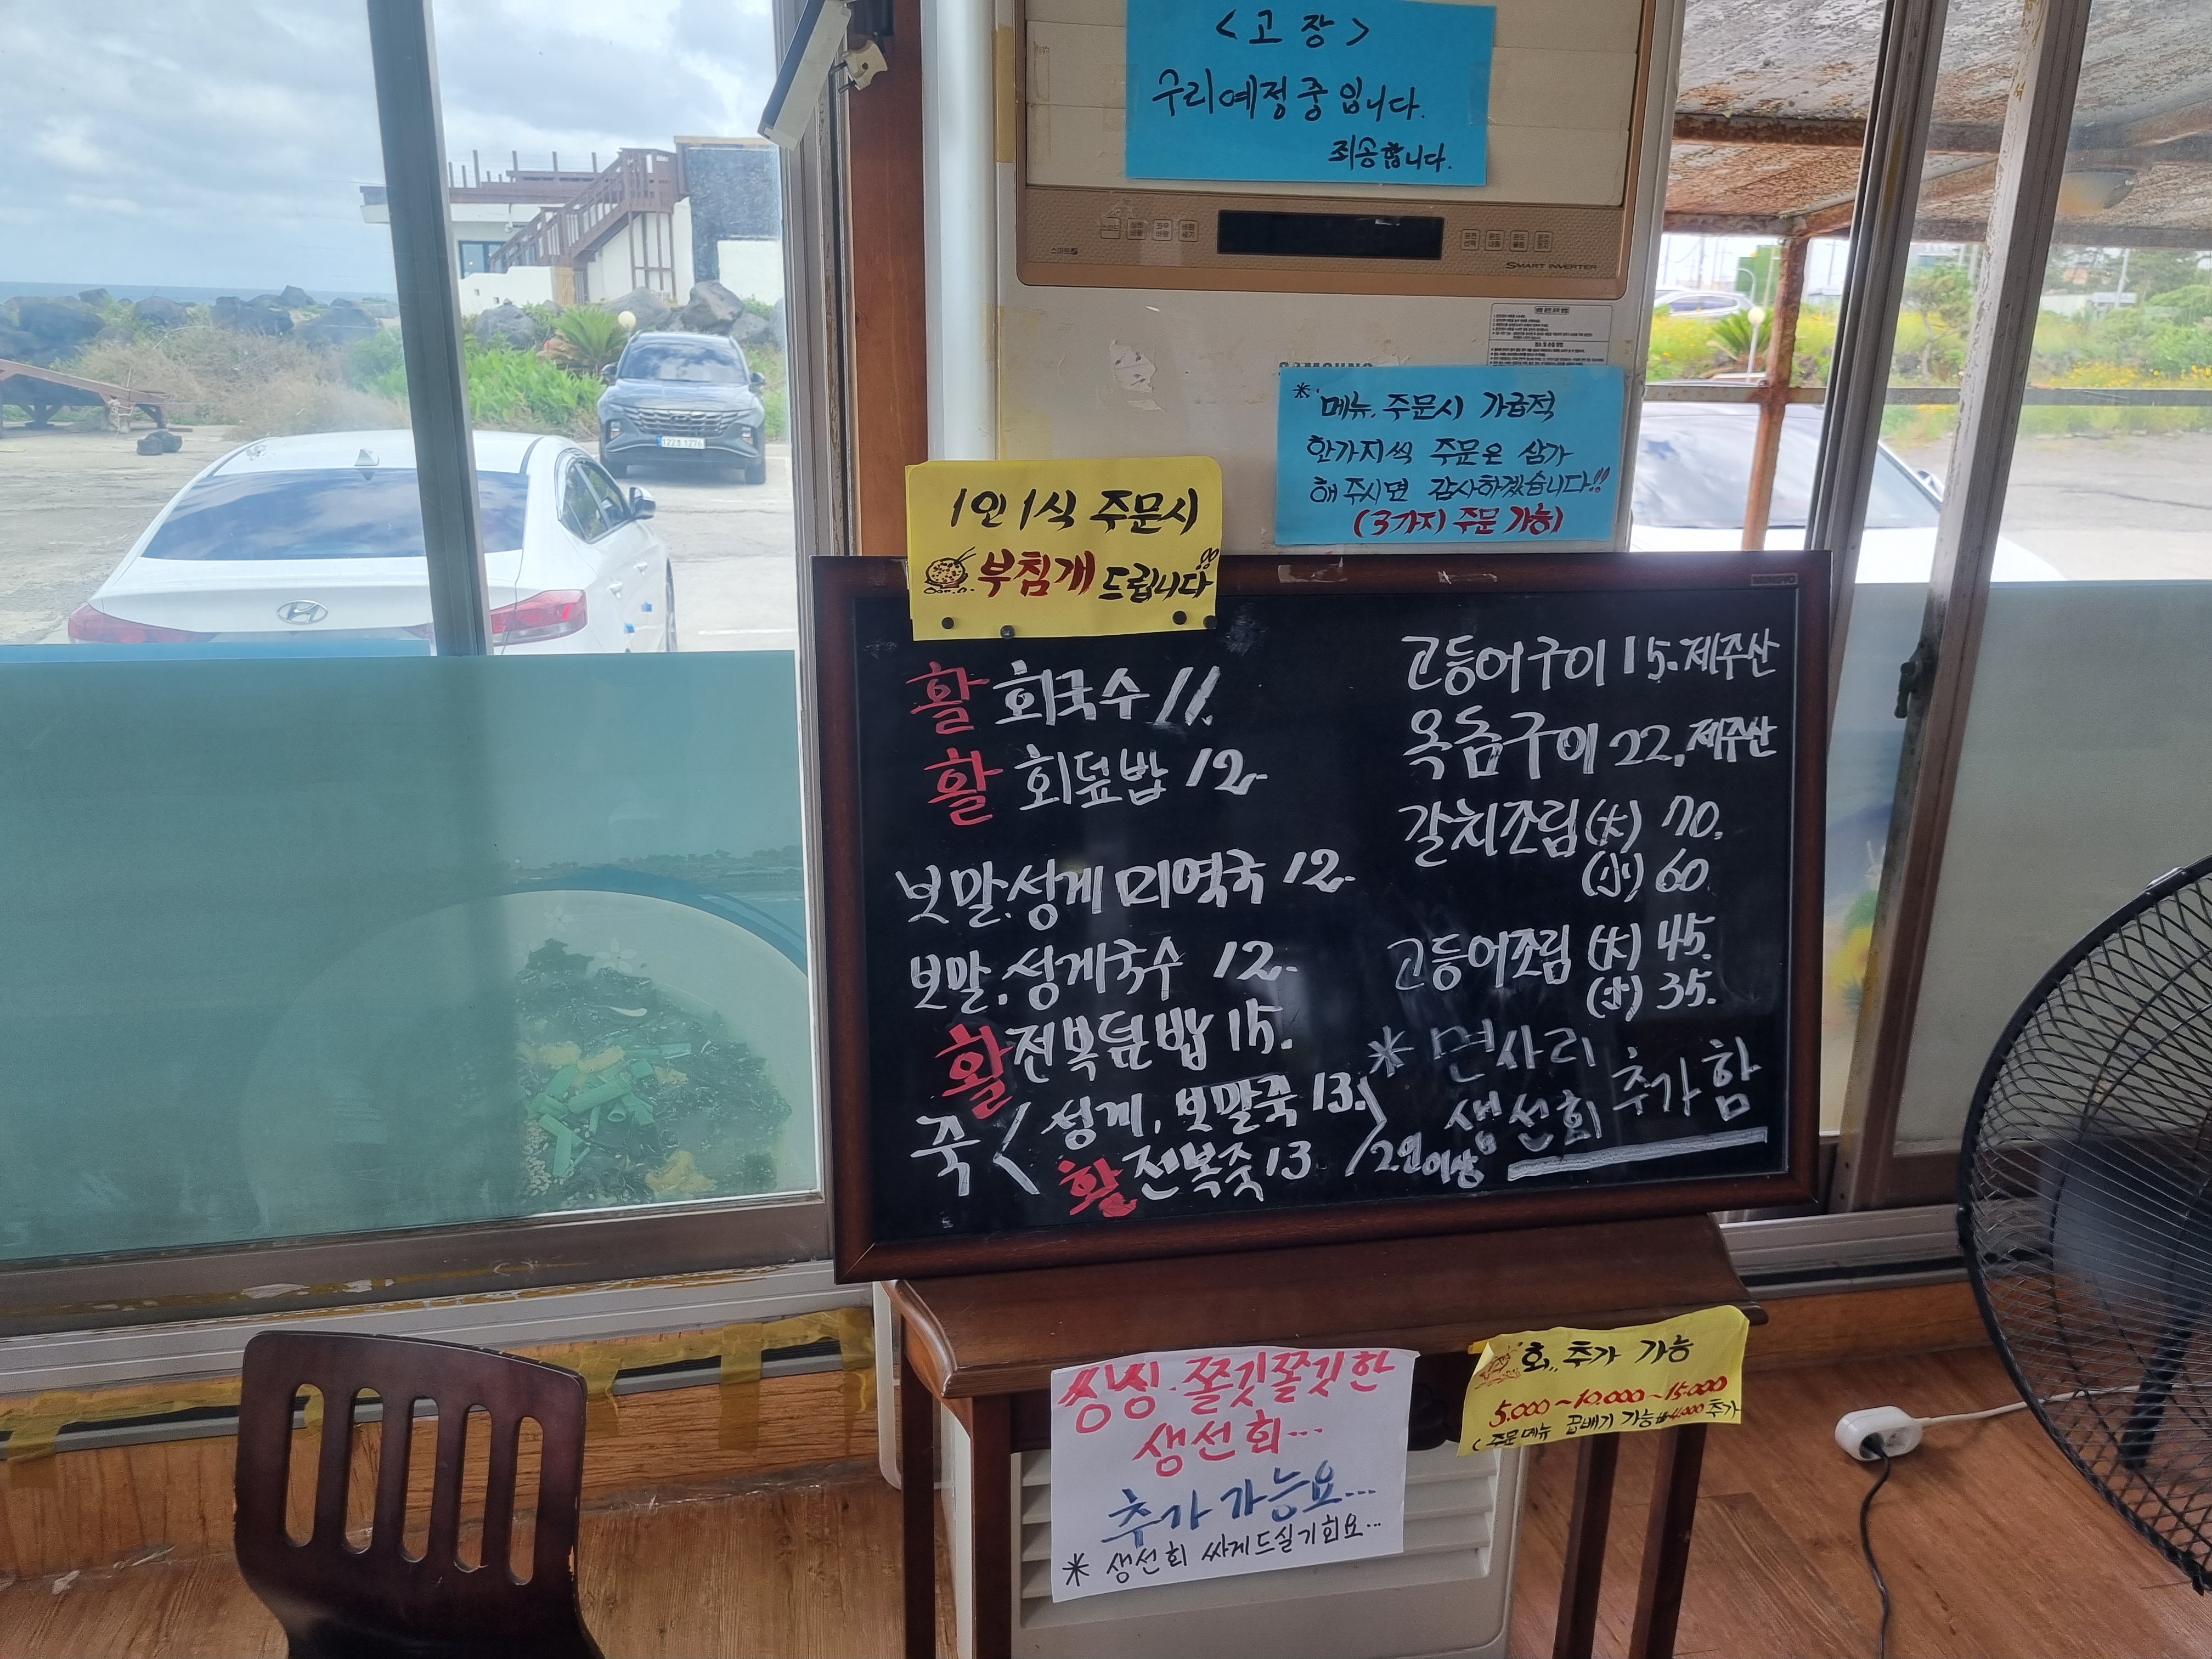 <고장>
수리예정중입니다.
죄송합니다.
SMART INVERTER
* 메뉴, 주문시 가급적
한가지씩 주문은 삼가
해 주시면 감사하겠습니다!!
(3가지 주문 가능)
1인 1식 주문시
부침개 드립니다!!
활 회국수 11.
활 회덮밥 12-
보말.성게 미역국 12-
보말.성게국수 12-
활 전복덮밥 15.
죽 < 성게, 보말죽 13.
활 전복죽 13
2인이상
고등어구이 15. 제주산
옥돔구이 22. 제주산
갈치조림 (大) 70.
(小) 60
고등어조림 (大) 45.
(小) 35.
* 면사리
생선회 추가함
싱싱.쫄깃쫄깃한
생선회...
추가 가능요...
* 생선회 싸게드실기회요...
회.. 추가 가능
5.000~10.000~15.000
(주문메뉴 곱배기 가능 ₩4.000 추가
122호 1276